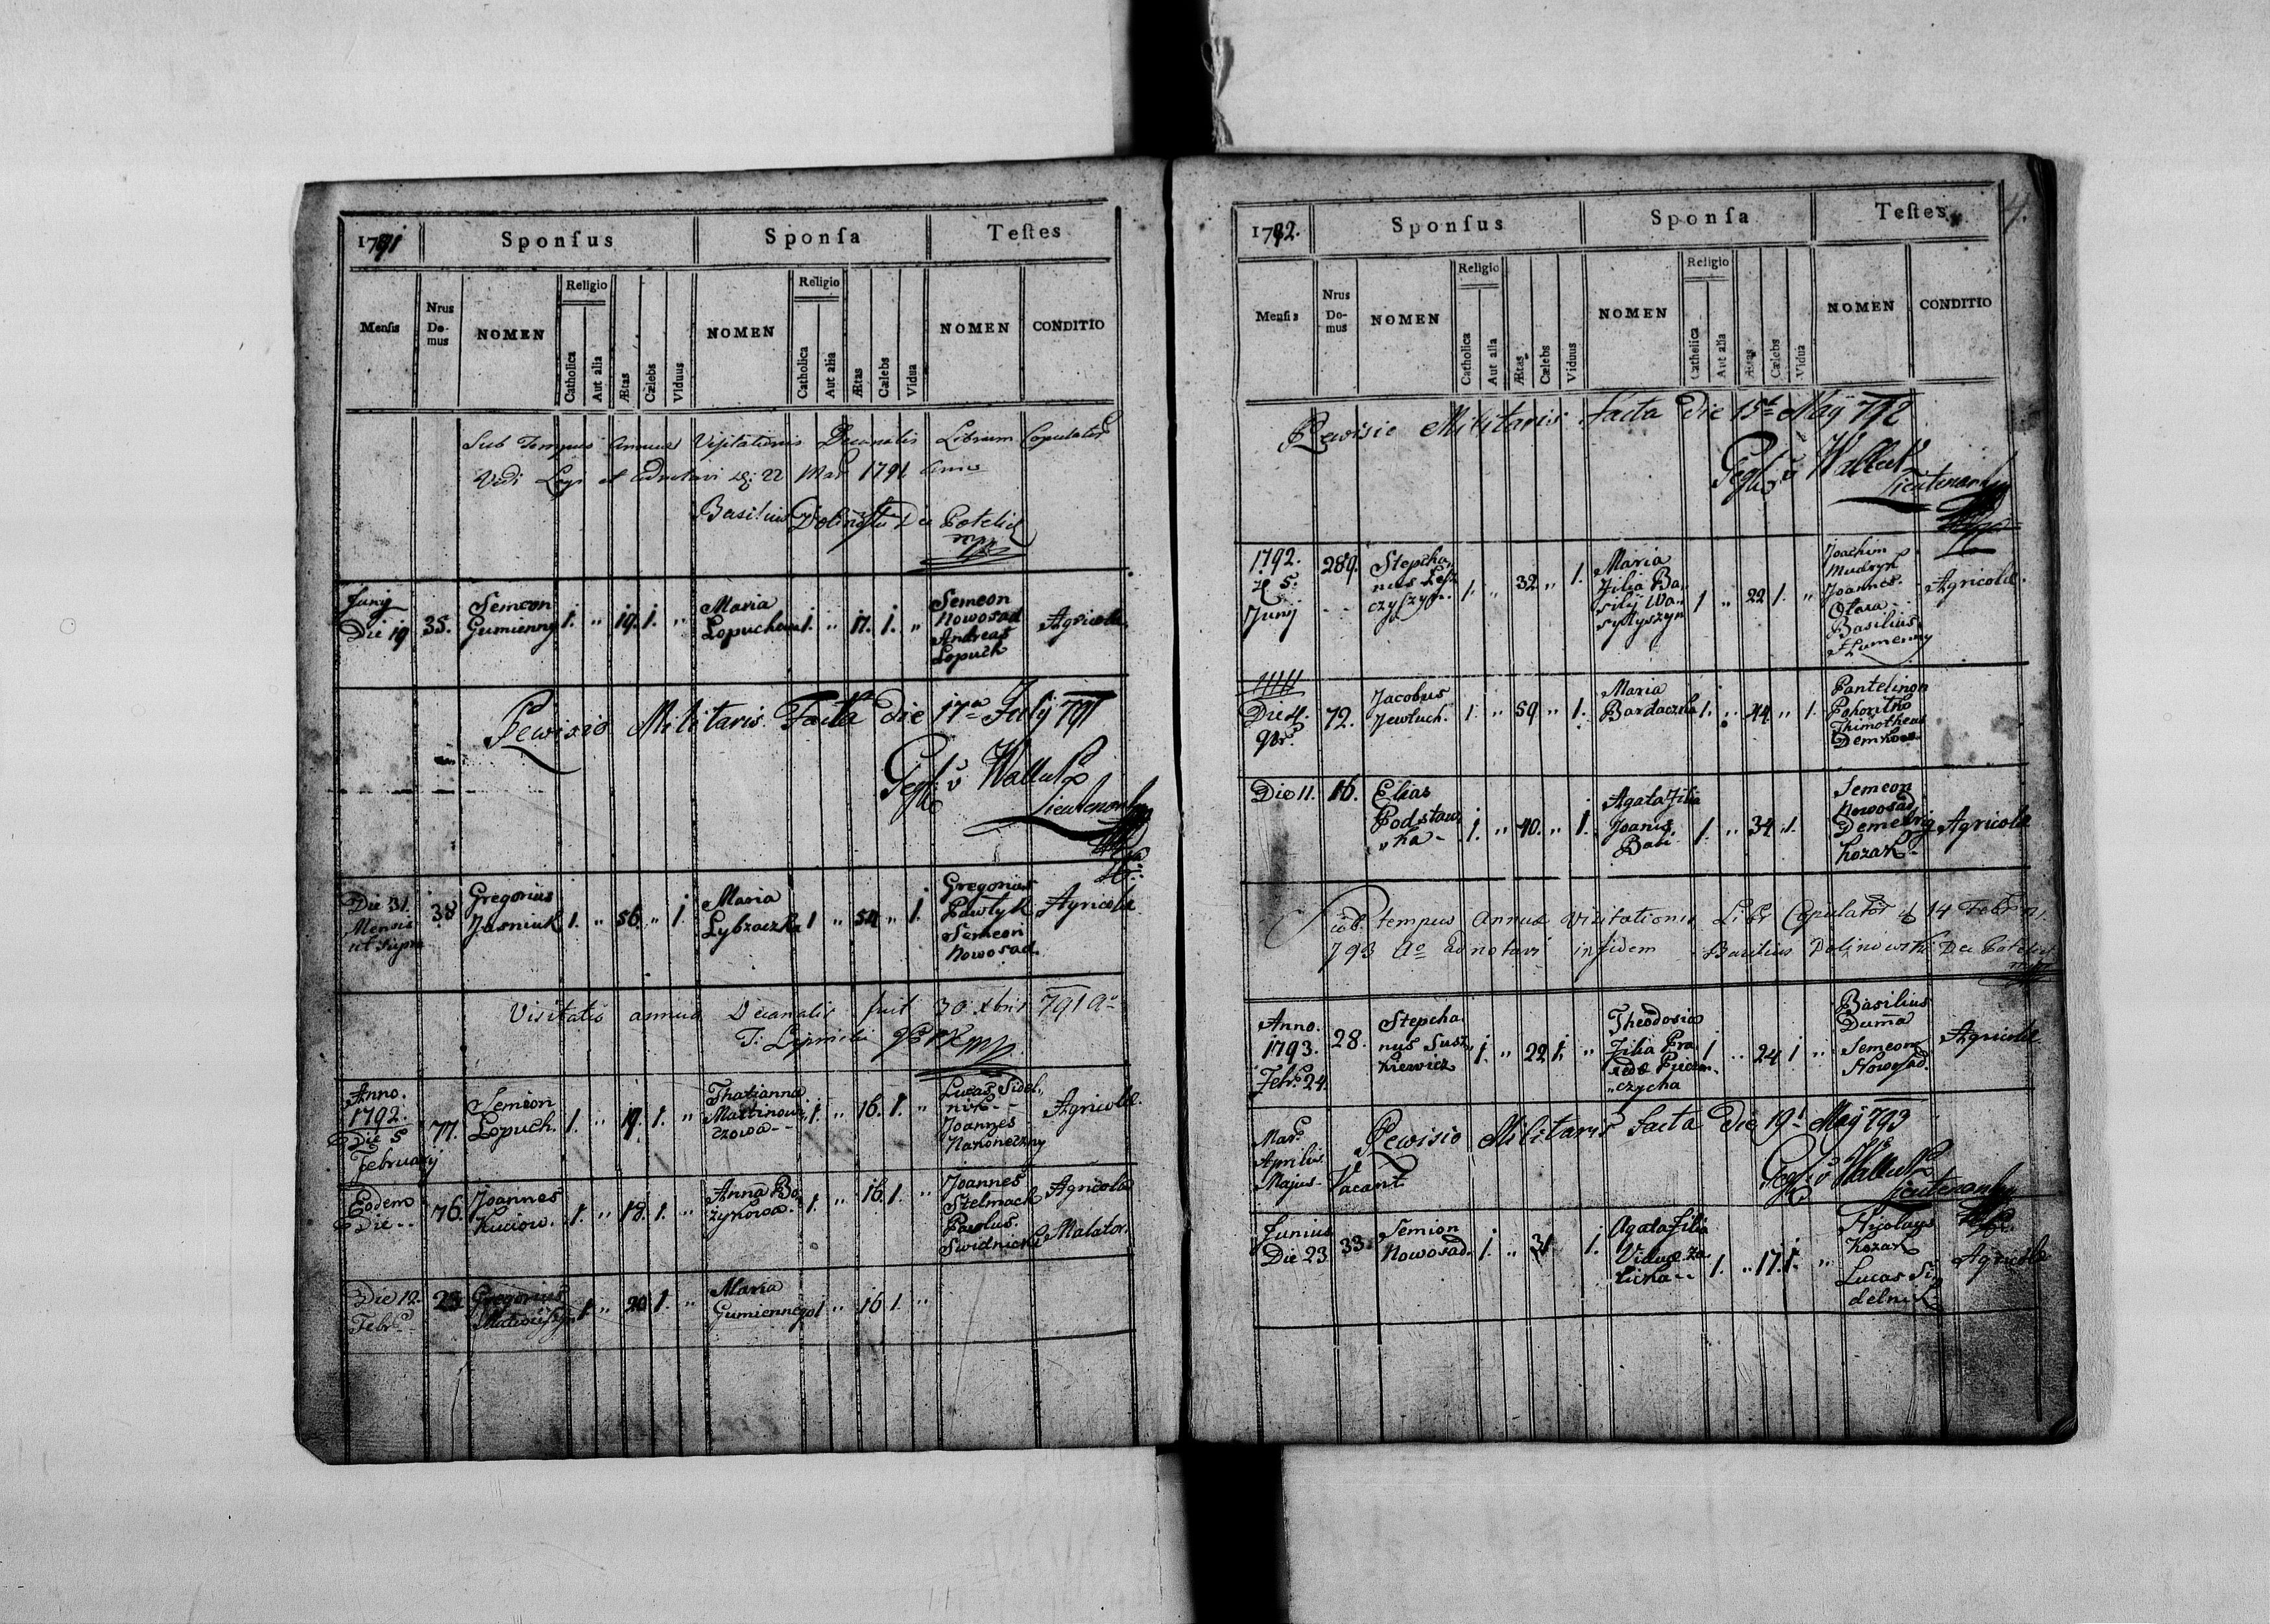 1791 Sponsus Sponsa Testes
Mensis Nrus Domus NOMEN Religio Catholica Aut alia Ætas Cælebs Viduus NOMEN Religio Catholica Aut alia Ætas Cælebs Vidua NOMEN CONDITIO
Sub Tempus Annuæ Visitationis Decanalis Librum Copulator
Vidi Legi et 22 1791 Anno
Basilius
Junij
Die 19 35. Semeon Gumienny 1. " 19. 1. " Maria 1. " 17. 1. " Semeon Nowosad Andreas Lopuch Agricolæ
Rewisio Militaris Facta Die 17a July 791
Lieutenant
Die 31. Mensis ut supra 38 Gregorius Jasniuk 1. " 56. " 1. Maria Lybraczka 1 " 54 " 1. Gregorius Pawlyk Semeon Nowosad Agricolæ
Visitatio annua Decanalis fuit 30 Xbris 791 Ao
Anno.
1792.
Die 5
February 77. Semion Lopuch. 1. " 19. 1. " Thatianna Martinowiczowa 1. " 16. 1. " Lucas Sidelnik Joannes Nakoneczny Agricolæ.
Eodem Die 76. Joannes Kuciow. 1. " 18. 1. " Anna 1. " 16. 1. " Joannes Stelmach Pawlus Swidnicki Agricola
Die 12. Febr. Gregorius 1. " 20 1. " Maria Gumiennego 1 " 16 1. "
1792. Sponsus Sponsa Testes 4.
Mensis Nrus Domus NOMEN Religio Catholica Aut alia Ætas Cælebs Viduus NOMEN Religio Catholica Aut alia Ætas Cælebs Vidua NOMEN CONDITIO
Rewisio Militaris Facta Die 15t Maÿ 792
Lieutenant
1792.
5.
Junij 289. Stephanus 1. " 32 " 1. Maria Filia Basilij Wasylyszyn 1 " 22 1. " Joachim Mudryk Joannes Otara Basilius Humenny Agricolæ.
Die 4. 9br. 72. Jacobus Jewtuch. 1. " 59 " 1. Maria Bardaczka 1. " 44 " 1. Pantelimon Thimotheus Demkow
Die 11. 16. Elias Podstawka 1. " 40. " 1. Agata Filia Joanis Babi 1. " 34 " 1. Semeon Nowosad Demetrig Kozak Agricolæ
tempus Annuæ Visitationis Libr Copulator 14 Febr
793 Ao adnotavi in fidem Basilius Dolinowski
Anno.
1793.
Febr. 24. 28. Stephanus 1. " 22 1. " Theodosia Filia 1 " 24 1 " Basilius Duma Semeon Nowosad. Agricolæ
Mar.
Aprilis
Majus Vacant
Rewisio Militaris Facta Die 19t Maÿ 793
Lieutenant
Junius
Die 23 33. Semion Nowosad. 1. " 31 1. Agata Filia Viduæ 1. " 17. 1. " Nicolaus Kozak Lucas Sidelnik Agricolæ